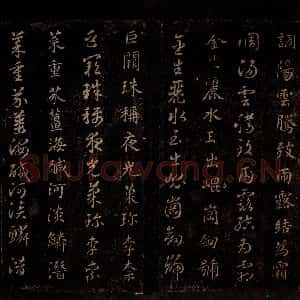 調陽雲騰致雨露結為霜
調陽雲騰致雨露結為霜
金生麗水玉出崑崗劍號
金生麗水玉出崑崗劍號
巨闕珠稱夜光菓珍李柰
巨闕珠稱夜光菓珍李柰
菜重芥薑海鹹河淡鱗潛
菜重芥薑海鹹河淡鱗潛
Shufawang.CN